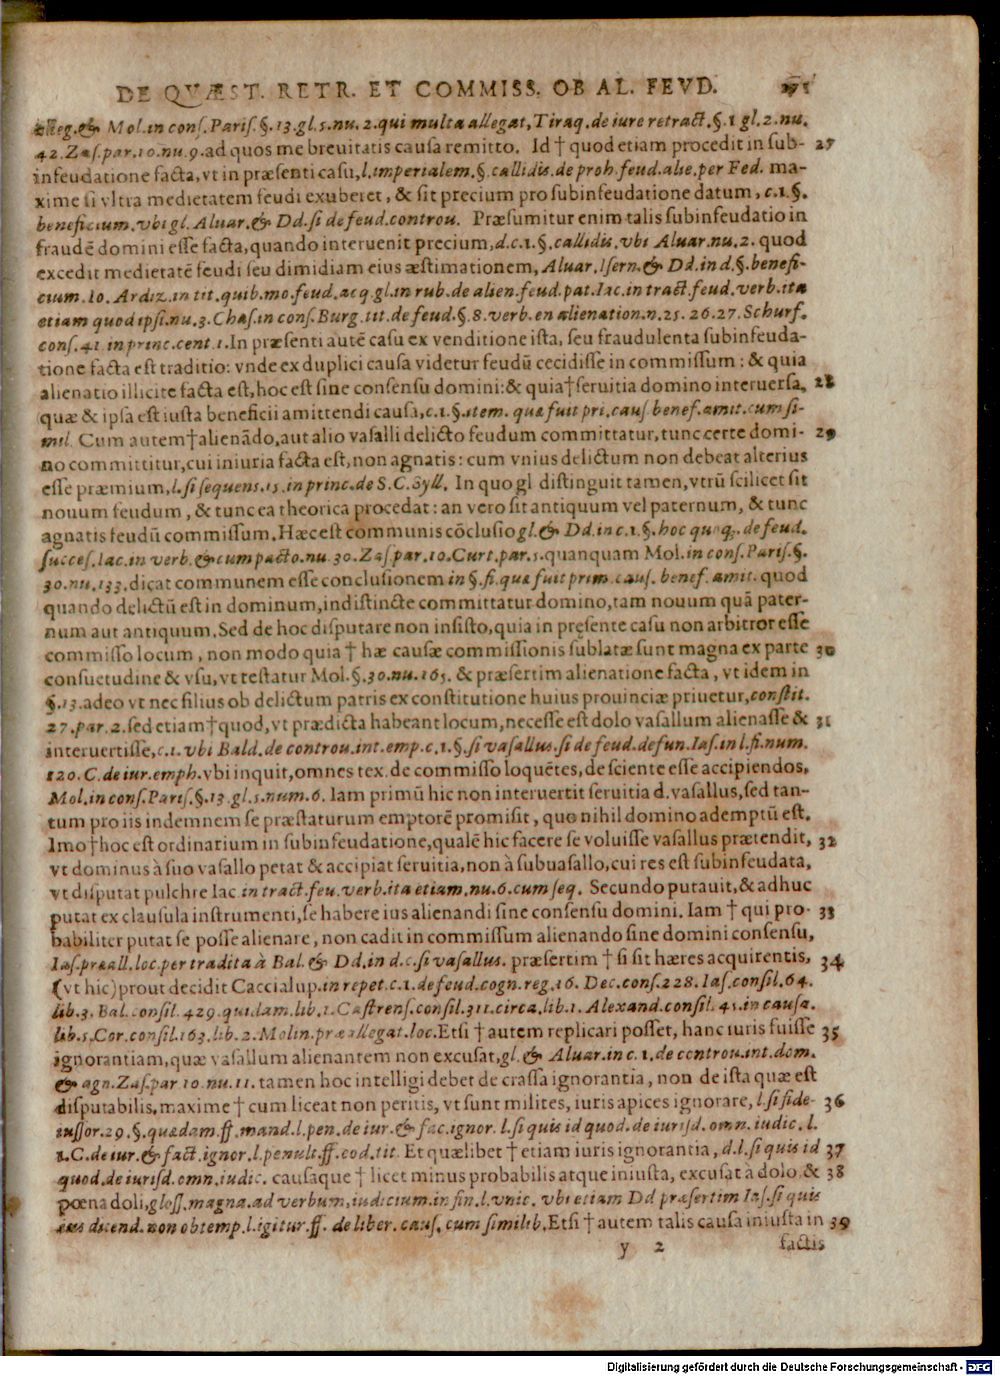 DE QVÆST. RETR. ET COMMISS. OB AL. FEVD. 171
alleg. & Mol. in cons. Paris. §. 13. gl. 5. nu. 2. qui multa allegat, Tiraq. de iure retract. §. 1 gl. 2. nu.
42. Zas. par. 10. nu. 9. ad quos me breuitatis causa remitto. Id † quod etiam procedit in sub- 27
infeudatione facta, vt in præsenti casu, l. imperialem. §. callidis. de proh. feud. alie. per Fed. ma-
xime si vltra medietatem feudi exuberet, & sit precium pro subinfeudatione datum, c. 1. §.
beneficium. vbi gl. Aluar. & Dd. si de feud. controu. Præsumitur enim talis subinfeudatio in
fraudē domini esse facta, quando interuenit precium, d. c. 1. §. callidis. vbi Aluar. nu. 2. quod
excedit medietatē feudi seu dimidiam eius æstimationem, Aluar. Isern. & Dd. in d. §. benefi-
cium. Io. Ardiz. in tit. quib. mo. feud. acq. gl. in rub. de alien. feud. pat. Iac. in tract. feud. verb. ita
etiam quod ipsi. nu. 3. Chas. in cons. Burg. tit. de feud. §. 8. verb. en alienation. n. 25. 26. 27. Schurf.
cons. 41 in princ. cent. 1. In præsenti autē casu ex venditione ista, seu fraudulenta subinfeuda-
tione facta est traditio: vnde ex duplici causa videtur feudū cecidisse in commissum: & quia
alienatio illicite facta est, hoc est sine consensu domini: & quia † seruitia domino interuersa, 28
quæ & ipsa est iusta beneficii amittendi causa, c. 1. §. item. qua fuit pri. caus. benef. amit. cum si-
mil. Cum autem † alienādo, aut alio vasalli delicto feudum committatur, tunc certe domi- 29
no committitur, cui iniuria facta est, non agnatis: cum vnius delictum non debeat alterius
esse præmium, l. si sequens. 15. in princ. de S. C. Syll. In quo gl distinguit tamen, vtrū scilicet sit
nouum feudum, & tunc ea theorica procedat: an vero sit antiquum vel paternum, & tunc
agnatis feudū commissum. Hæc est communis cōclusio gl. & Dd. in c. 1. §. hoc quoq;. de feud.
succes. Iac. in verb. & cum pacto. nu. 30. Zas par. 10. Curt. par. 5. quanquam Mol. in cons. Paris. §.
30. nu. 133. dicat communem esse conclusionem in §. fi. qua fuit prim. caus. benef. amit. quod
quando delictū est in dominum, indistincte committatur domino, tam nouum quā pater-
num aut antiquum. Sed de hoc disputare non insisto, quia in pręsente casu non arbitror esse
commisso locum, non modo quia † hæ causæ commissionis sublatæ sunt magna ex parte 30
consuetudine & vsu, vt testatur Mol. §. 30. nu. 165. & præsertim alienatione facta, vt idem in
§. 13. adeo vt nec filius ob delictum patris ex constitutione huius prouinciæ priuetur, constit.
27. par. 2. sed etiam † quod, vt prædicta habeant locum, necesse est dolo vasallum alienasse & 31
interuertisse, c. 1. vbi Bald. de controu. int. emp. c. 1. §. si vasallus. si de feud. defun. Ias. in l. fi. num.
120. C. de iur. emph. vbi inquit, omnes tex. de commisso loquētes, de sciente esse accipiendos,
Mol. in cons. Paris. §. 13. gl. 5. num. 6. Iam primū hic non interuertit seruitia d. vasallus, sed tan-
tum pro iis indemnem se præstaturum emptorē promisit, quo nihil domino ademptū est.
Imo † hoc est ordinarium in subinfeudatione, qualē hic facere se voluisse vasallus prætendit, 32
vt dominus à suo vasallo petat & accipiat seruitia, non à subuasallo, cui res est subinfeudata,
vt disputat pulchre Iac. in tract. feu. verb. ita etiam. nu. 6. cum seq. Secundo putauit, & adhuc
putat ex clausula instrumenti, se habere ius alienandi sine consensu domini. Iam † qui pro- 33
babiliter putat se posse alienare, non cadit in commissum alienando sine domini consensu,
Ias. præall. loc. per tradita à Bal. & Dd. in d. c. si vasallus. præsertim † si sit hæres acquirentis, 34
(vt hic) prout decidit Caccialup. in repet. c. 1. de feud. cogn. reg. 16. Dec. cons. 228. Ias. consil. 64.
lib. 3. Bal. consil. 429. quidam. lib. 1. Castrens. consil. 311. circa. lib. 1. Alexand. consil. 41. in causa.
lib. 5. Cor. consil. 163. lib. 2. Molin. præallegat. loc. Etsi † autem replicari posset, hanc iuris fuisse 35
ignorantiam, quæ vasallum alienantem non excusat, gl. & Aluar. in c. 1. de controu. int. dom.
& agn. Zas. par. 10. nu. 11. tamen hoc intelligi debet de crassa ignorantia, non de ista quæ est
disputabilis, maxime † cum liceat non peritis, vt sunt milites, iuris apices ignorare, l. si fide- 36
iussor. 29. §. quædam. ff. mand. l. pen. de iur. & fac. ignor. l. si quis id quod. de iurisd. omn. iudic. l.
1. C. de iur. & fact. ignor. l. penult. ff. eod. tit. Et quælibet † etiam iuris ignorantia, d. l. si quis id 37
quod. de iurisd. omn. iudic. causaque † licet minus probabilis atque iniusta, excusat à dolo & 38
pœna doli, gloss. magna. ad verbum, iudicium. in fin. l. vnic. vbi etiam Dd præsertim Ias. si quis
ius dicend. non obtemp. l. igitur. ff. de liber. caus. cum similib. Etsi † autem talis causa iniusta in 39
y 2 factis
Digitalisierung gefördert durch die Deutsche Forschungsgemeinschaft - DFG